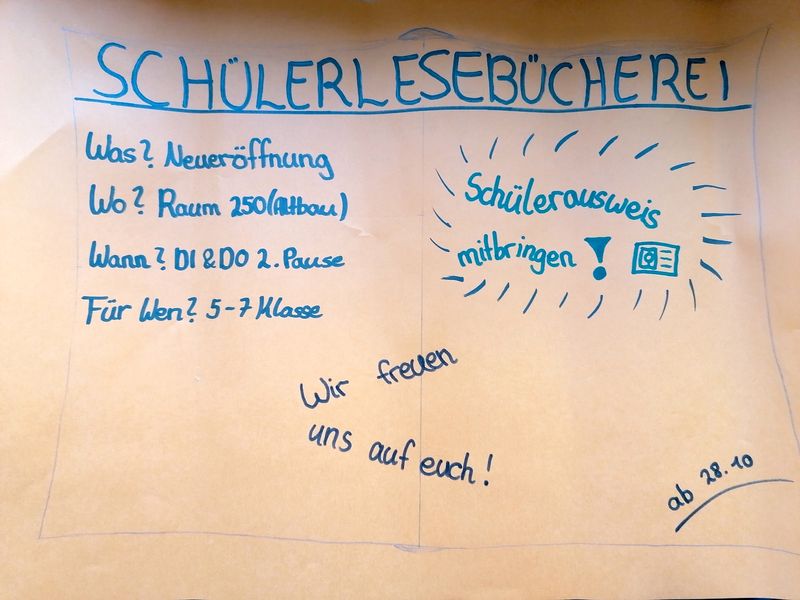 SCHÜLERLESEBÜCHEREI
Was? Neueröffnung
Wo? Raum 250 (Altbau)
Wann? DI & DO 2. Pause
Für Wen? 5-7 Klasse
Schülerausweis
mitbringen !
Wir freuen
uns auf euch!
ab 28.10